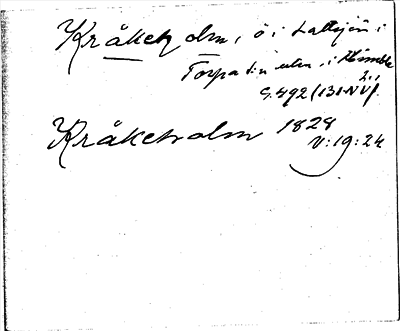 Kråkeholm, ö i Lattsjön i
Torpa sn utm. i Himble
G.492 (131 NV).
Kråkeholm 1828
V:19:24